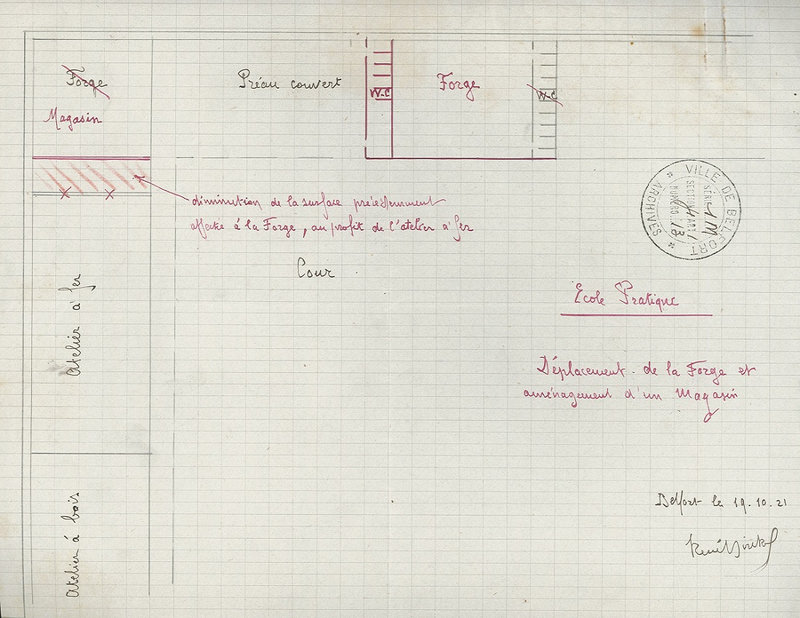 Forge
Magasin
Préau couvert
W-C
Forge
W-C
diminution de la surface précédemment
affectée à la Forge, au profit de l'atelier à fer
Cour
VILLE DE BELFORT
ARCHIVES
SÉRIE 1M
SECTION
NUMÉRO 13
Atelier à fer
Atelier à bois
Ecole Pratique
Déplacement de la Forge et
aménagement d'un Magasin
Belfort le 19.10.21